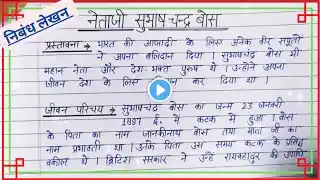 निबंध लेखन
नेताजी सुभाषचन्द्र बोस
प्रस्तावना → भारत की आजादी के लिए अनेक वीर सपूतों
ने अपना बलिदान दिया। सुभाषचन्द्र बोस भी
महान नेता और देश-भक्त पुरुष थे। उन्होंने अपना
जीवन देश के लिए कर दिया था।
जीवन परिचय → सुभाषचन्द्र बोस का जन्म 23 जनवरी
1897 ई. में कटक में हुआ। बोस
के पिता का नाम जानकीनाथ बोस तथा माता जी का
नाम प्रभावती था। उनके पिता उस समय कटक के प्रसिद्ध
वकील थे। ब्रिटिश सरकार ने उन्हें रायबहादुर की उपाधि